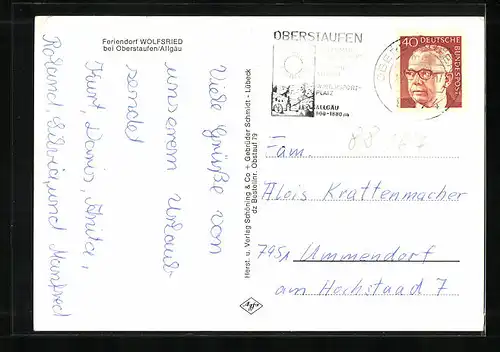 Feriendorf WOLFSRIED
bei Oberstaufen/Allgäu
Viele Grüße von
unserem Urlaub
sendet
Kurt, Doris, Anita,
Roland, Silvia, und Manfred
Herst. u. Verlag Schöning & Co + Gebrüder Schmidt - Lübeck
dz Bestellnr. Obstauf 79
Agfa
OBERSTAUFEN
PLATZ
ALLGÄU
40 DEUTSCHE
BUNDESPOST
Fam.
Alois Krattenmacher
7951 Ummendorf
am Hochstaad 7